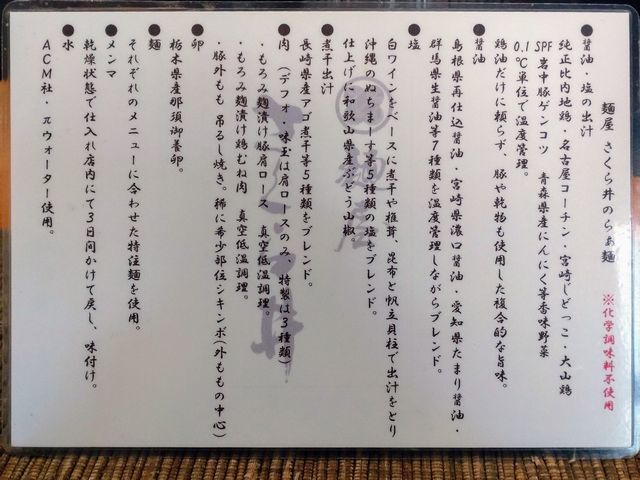 麺屋 さくら井のらぁ麺 ※化学調味料不使用
● 醤油・塩の出汁
純正比内地鶏・名古屋コーチン・宮崎じどっこ・大山鶏
SPF岩中豚ゲンコツ 青森県産にんにく等香味野菜
0.1℃単位で温度管理。
鶏油だけに頼らず、豚や乾物も使用した複合的な旨味。
● 醤油
島根県再仕込醤油・宮崎県濃口醤油・愛知県たまり醤油・
群馬県生醤油等7種類を温度管理しながらブレンド。
● 塩
白ワインをベースに煮干や椎茸、昆布と帆立貝柱で出汁をとり
沖縄のぬちまーす等5種類の塩をブレンド。
仕上げに和歌山県産ぶどう山椒
● 煮干出汁
長崎県産アゴ煮干等5種類をブレンド。
● 肉 (デフォ・味玉は肩ロースのみ、特製は3種類)
・もろみ麹漬け豚肩ロース 真空低温調理。
・もろみ麹漬け鶏むね肉 真空低温調理。
・豚外もも 吊るし焼き。稀に希少部位シキンボ(外ももの中心)
● 卵
栃木県産那須御養卵。
● 麺
それぞれのメニューに合わせた特注麺を使用。
● メンマ
乾燥状態で仕入れ店内にて3日間かけて戻し、味付け。
● 水
ACM社・πウォーター使用。
麺屋
さくら井